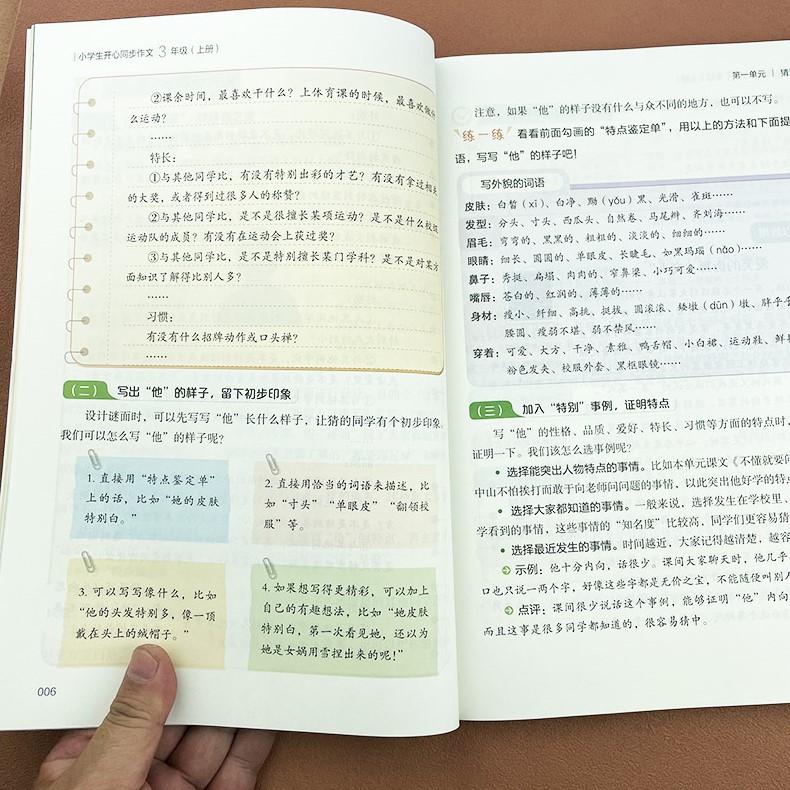 小学生开心同步作文 3 年级（上册）
②课余时间，最喜欢干什么？上体育课的时候，最喜欢做什
么运动？
……
特长：
①与其他同学比，有没有特别出彩的才艺？有没有拿过相关
的大奖，或者得到过很多人的称赞？
②与其他同学比，是不是很擅长某项运动？是不是什么校级
运动队的成员？有没有在运动会上获过奖？
③与其他同学比，是不是特别擅长某门学科？是不是对某方
面知识了解得比别人多？
……
习惯：
有没有什么招牌动作或口头禅？
……
（二） 写出“他”的样子，留下初步印象
设计谜面时，可以先写写“他”长什么样子，让猜的同学有个初步印象。
我们可以怎么写“他”的样子呢？
1. 直接用“特点鉴定单”
上的话，比如“她的皮肤
特别白。”
2. 直接用恰当的词语来描述，比
如“寸头”“单眼皮”“翻领校
服”等。
3. 可以写写像什么，比如
“他的头发特别多，像一顶
戴在头上的绒帽子。”
4. 如果想写得更精彩，可以加上
自己的有趣想法，比如“她皮肤
特别白，第一次看见她，还以为
她是女娲用雪捏出来的呢！”
006
第一单元 | 猜
注意，如果“他”的样子没有什么与众不同的地方，也可以不写。
练一练 看看前面勾画的“特点鉴定单”，用以上的方法和下面提
语，写写“他”的样子吧！
写外貌的词语
皮肤：白皙（xī）、白净、黝（yǒu）黑、光滑、雀斑……
发型：分头、寸头、西瓜头、自然卷、马尾辫、齐刘海……
眉毛：弯弯的、黑黑的、粗粗的、淡淡的、细细的……
眼睛：细长、圆圆的、单眼皮、长睫毛、如黑玛瑙（nǎo）……
鼻子：秀挺、扁塌、肉肉的、窄鼻梁、小巧可爱……
嘴唇：苍白的、红润的、薄薄的……
身材：瘦小、纤细、高挑、挺拔、圆滚滚、矮墩（dūn）墩、胖乎
腰圆、瘦弱不堪、弱不禁风……
穿着：可爱、大方、干净、素雅、鸭舌帽、小白裙、运动鞋、鲜
粉色发夹、校服外套、黑框眼镜……
（三） 加入“特别”事例，证明特点
写“他”的性格、品质、爱好、特长、习惯等方面的特点时，
证明一下。我们该怎么选事例呢？
• 选择能突出人物特点的事情。比如本单元课文《不懂就要问
中山不怕挨打而敢于向老师问问题的事情，以此突出他好学的特点
• 选择大家都知道的事情。一般来说，选择发生在学校里、
学看到的事情，这些事情的“知名度”比较高，同学们更容易猜
• 选择最近发生的事情。时间越近，大家记得越清楚，越容
示例：他十分内向，话很少。课间大家聊天时，他几乎
口也只说一两个字，好像这些字都是无价之宝，不能随便叫别人
点评：课间很少说话这个事例，能够证明“他”内向
而且这事是很多同学都知道的，很容易猜中。